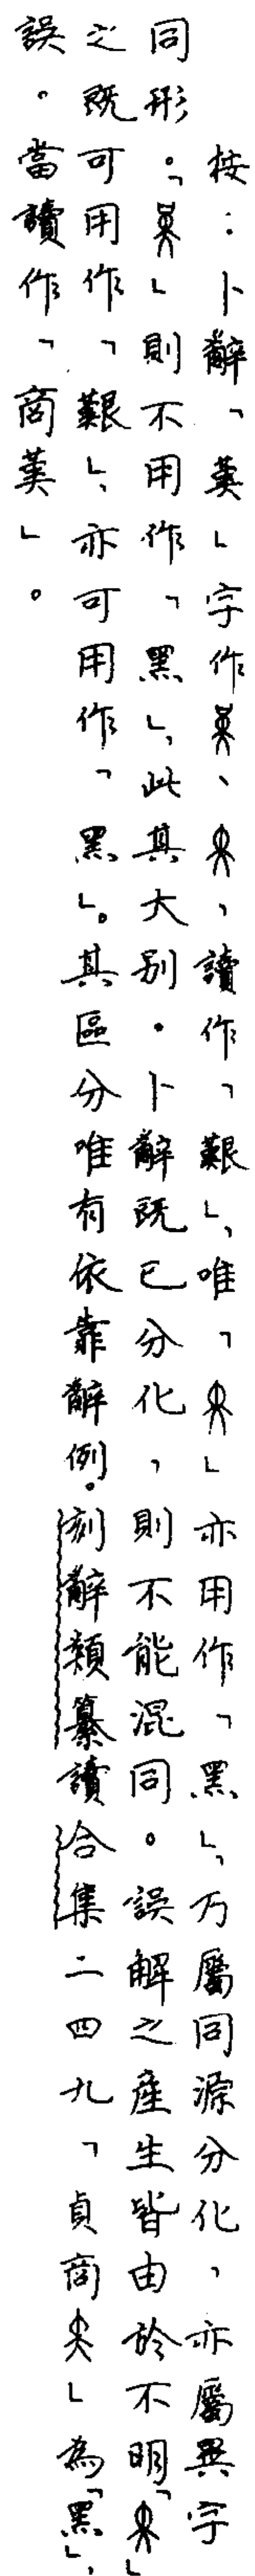 按：卜辭「萬」字作、，讀作「艱」，唯「」亦用作「黑」，乃屬同源分化，亦屬異字
同形。「」則不用作「黑」，此其大別。卜辭既已分化，則不能混同。誤解之產生皆由於不明「」
之既可用作「艱」，亦可用作「黑」。其區分唯有依靠辭例。刻辭類纂讀合集二四九「貞商」為「黑」，
誤。當讀作「商」。